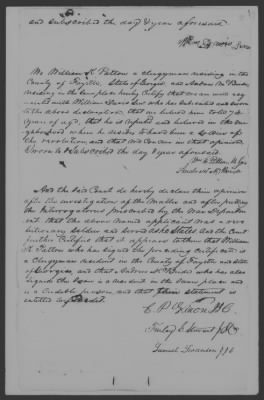 and subscribed the day & year aforesaid
We William K Patton a Clergyman residing in the
County of Fayette State of Georgia and Andrew McBride
residing in the same place hereby Certify that we are well acq-
uainted with William Davis Sen who has subscribed and sworn
to the above declaration, that we believe him to be
years of age, that he is reputed and believed in the Nei-
ghbourhood where he resides to have been a Soldier of
the revolution and that we Concur in that opinion
Sworn to & Subscribed the day & year aforesaid
Wm K Patton
Andrew McBride
And the said Court do hereby declare their opinion
after the investigation of the Matter and after putting
the Interrogatories prescribed by the War Depart-
ment that the above named applicant was a rev-
olutionary Soldier and served as he States And the Court
further Certifies that it appears to them that William
K Patton who has signed the preceding Certificate is
a Clergyman resident in the County of Fayette and State
of Georgia, and that Andrew McBride who has also
signed the same is a resident in the same place and
is a Credible person and that their statement is
entitled to Credit.